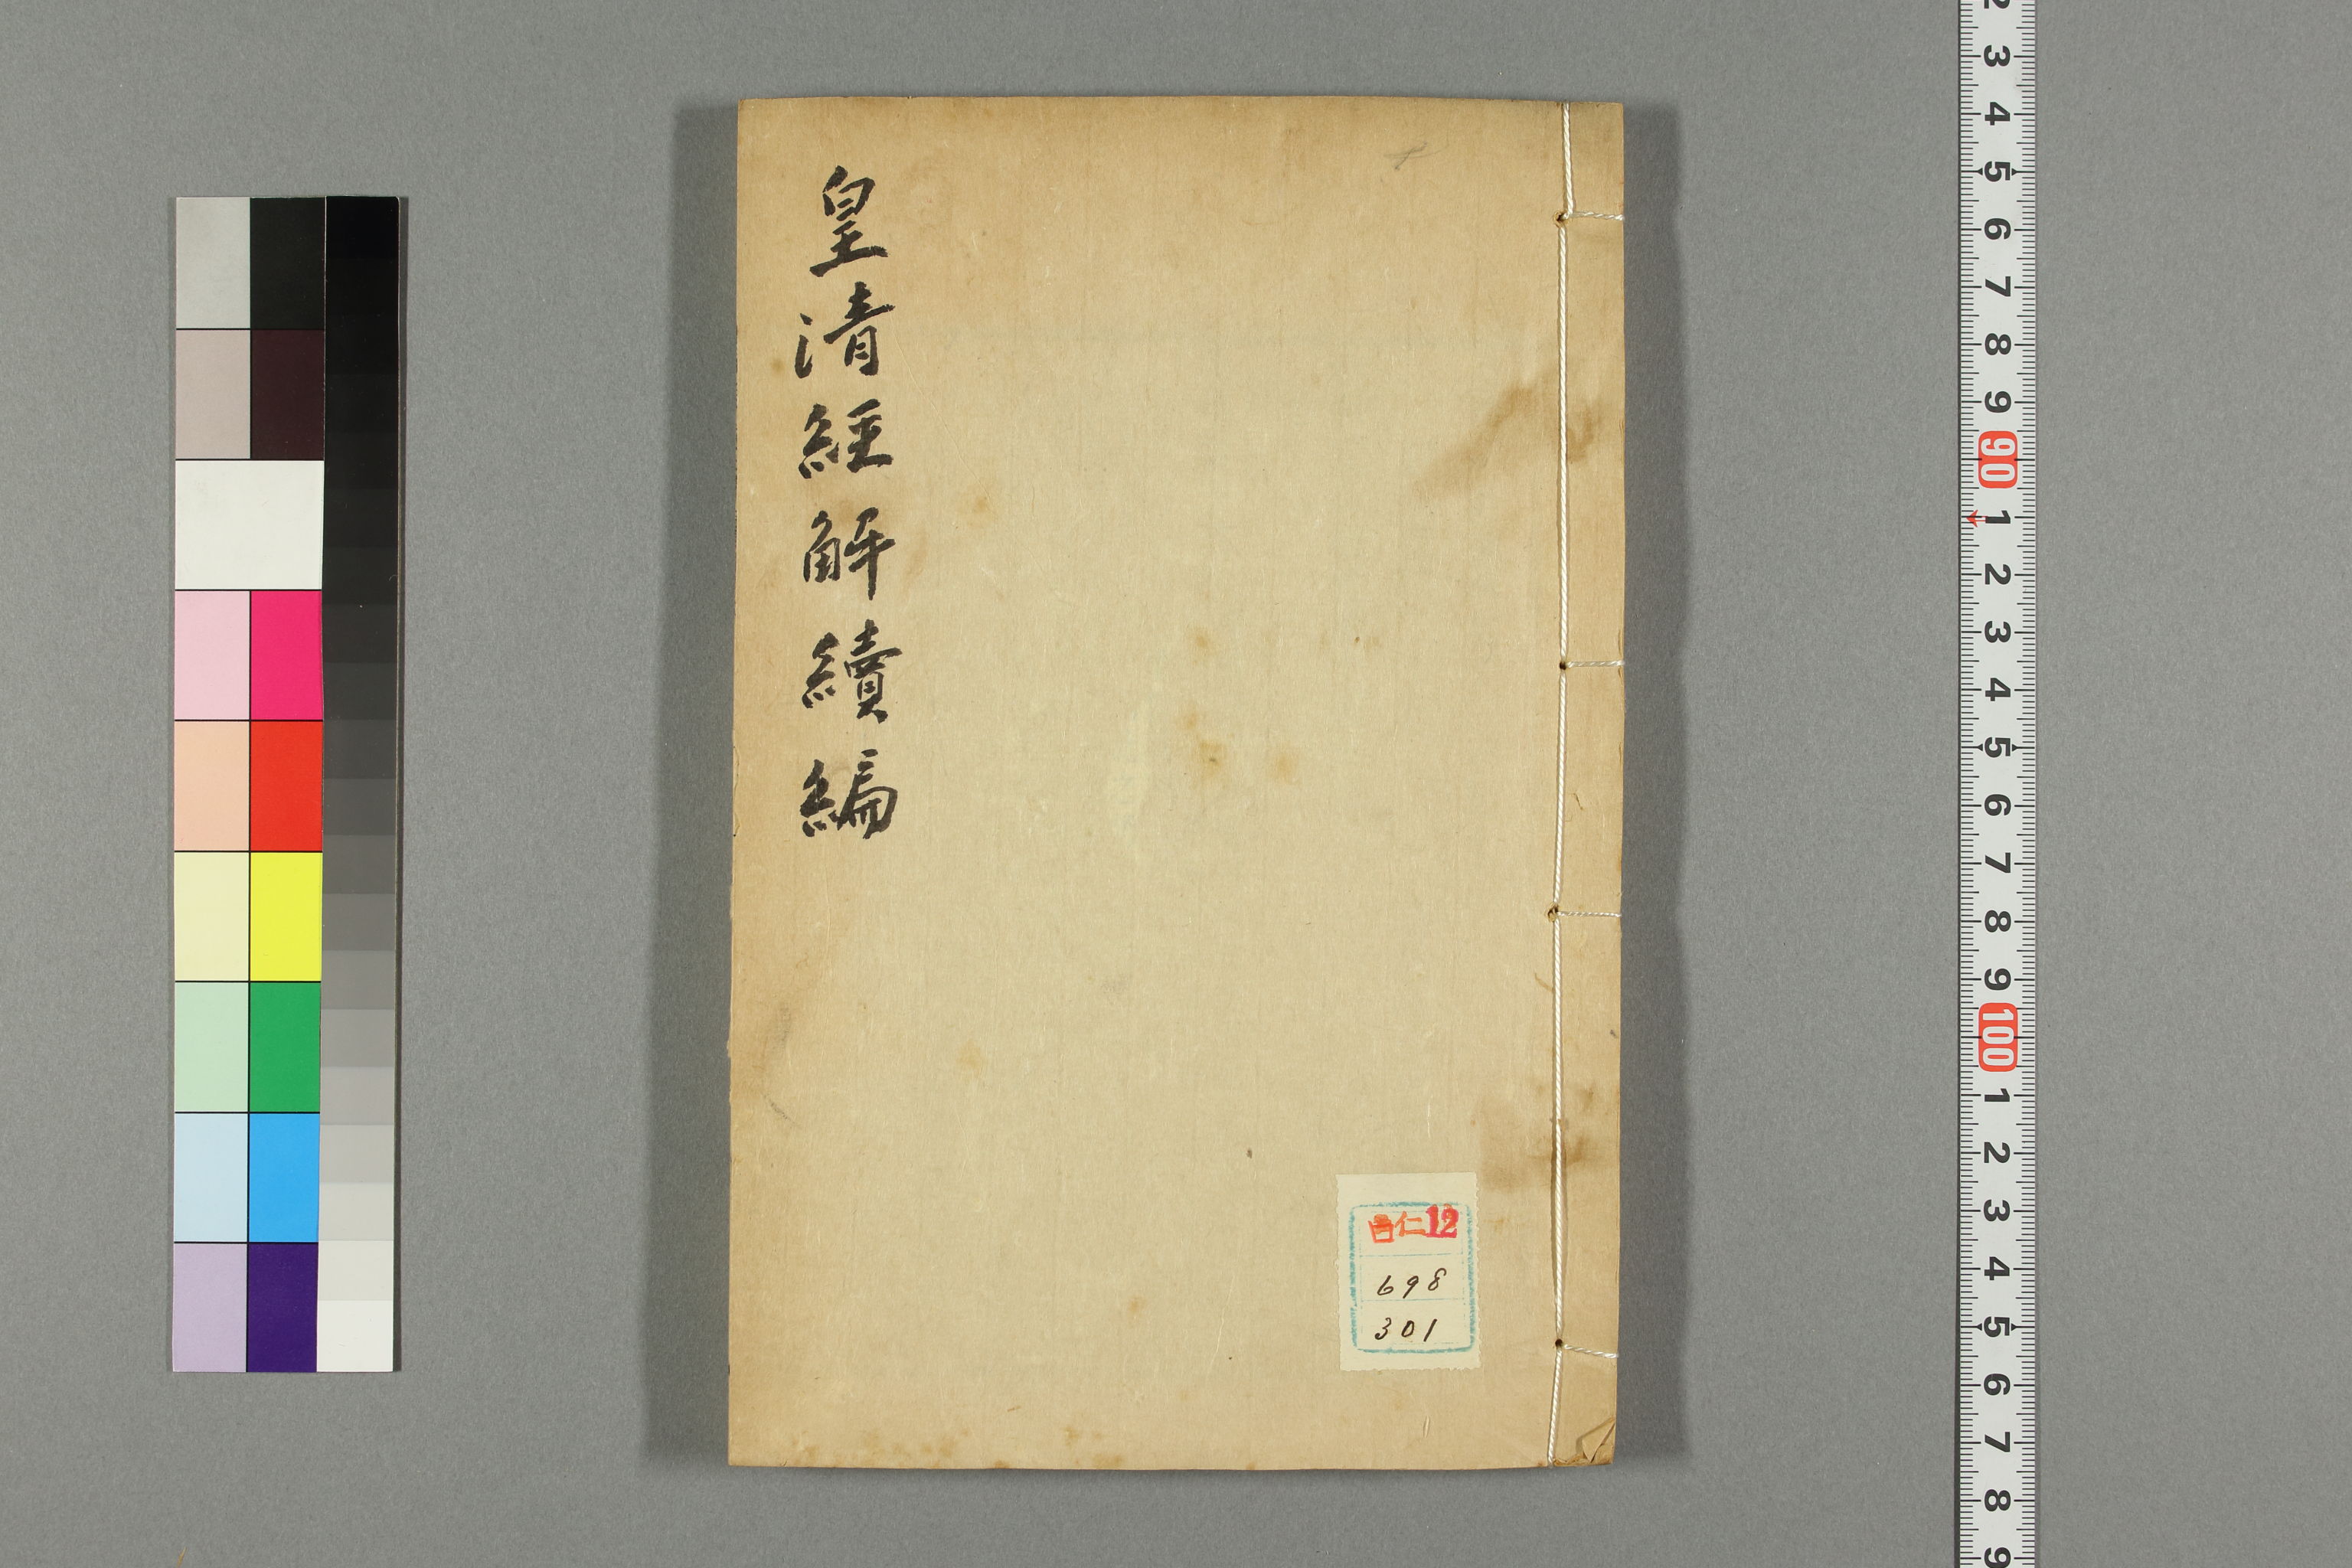 皇清經解續編
仁12
698
301
2
3
4
5
6
7
8
9
90
1
2
3
4
5
6
7
8
9
100
1
2
3
4
5
6
7
8
9